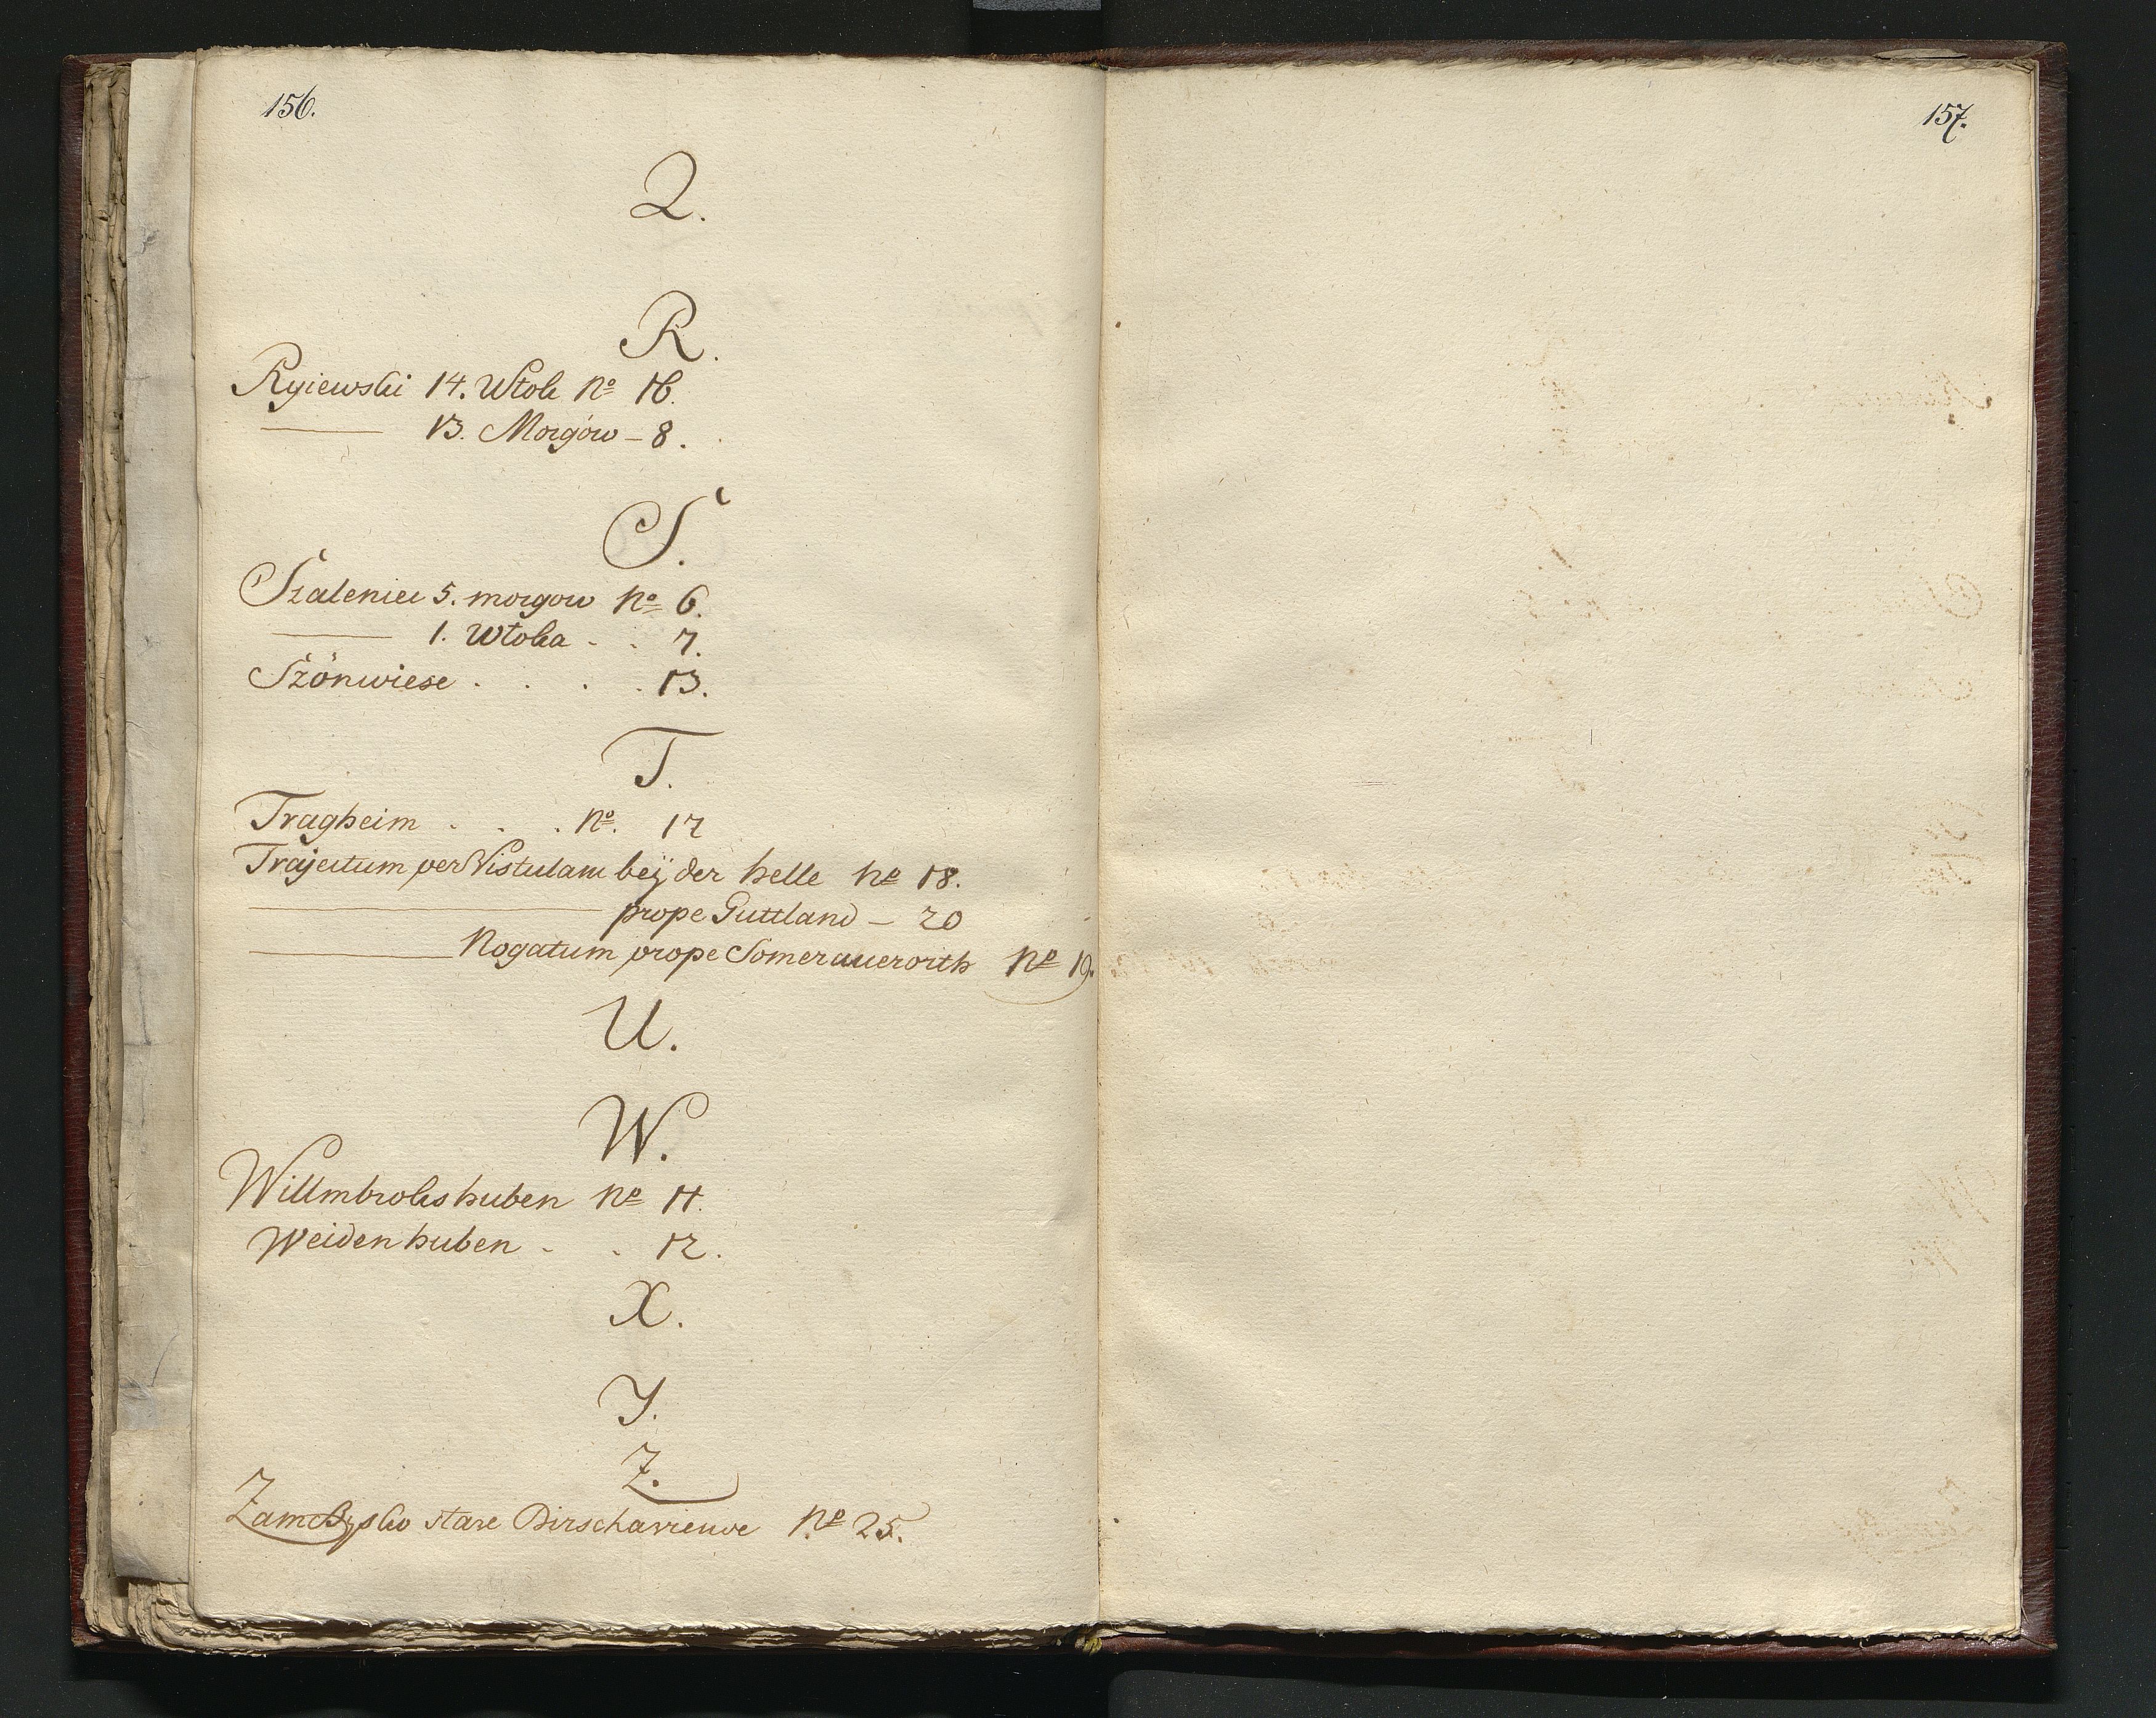 156.
Q.
R.
Ryiewski 14. Włok No 16.
13. Morgow – 8.
S.
Szaleniec 5. morgow No 6.
1. Włoka - . 7.
Szönwiese . . . . 13.
T.
Tragheim . . . No. 17
Trajectum per Vistulam beÿ der helle No 18.
prope Guttland – 20
Nogatum prope Somerauerorth No 19.
U.
W.
Willmbrokshuben No 11.
Weidenhuben - . 12.
X.
Y.
Z.
stare No 25.
157.